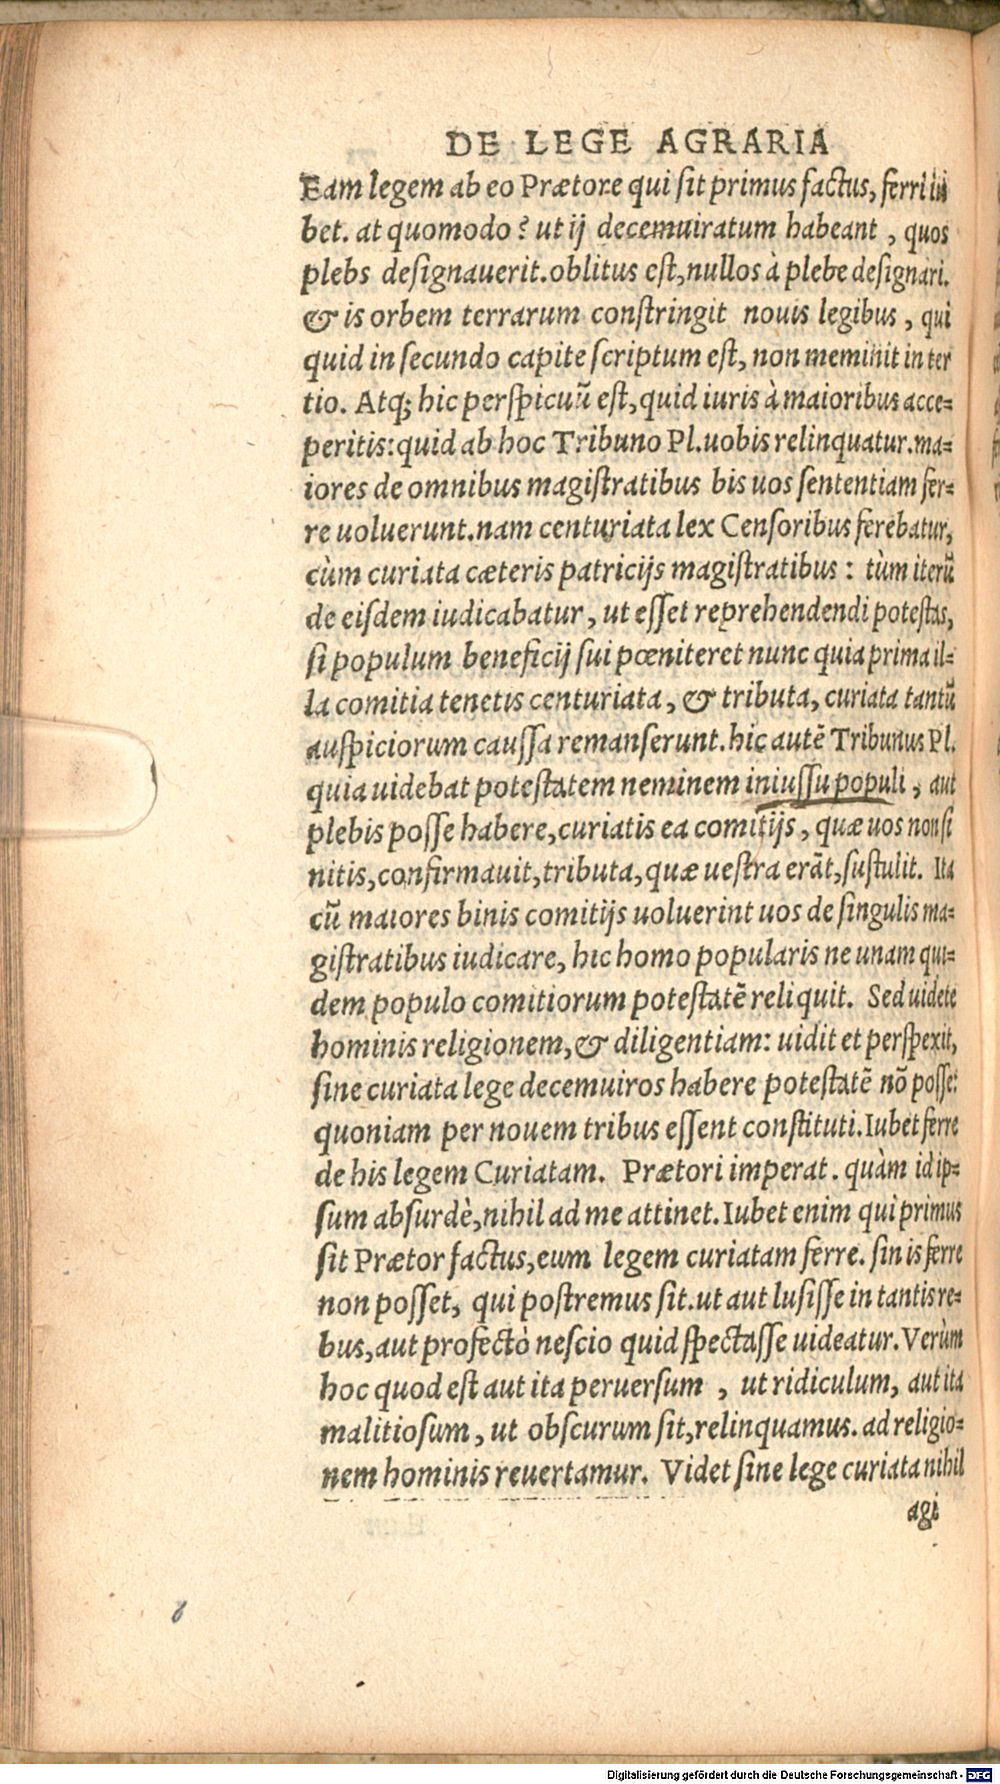 DE LEGE AGRARIA
Eam legem ab eo Prætore qui sit primus factus, ferri iu
bet. at quomodo? ut ij decemuiratum habeant, quos
plebs designauerit. oblitus est, nullos à plebe designari.
& is orbem terrarum constringit nouis legibus, qui
quid in secundo capite scriptum est, non meminit in ter
tio. Atq; hic perspicuũ est, quid iuris à maioribus acce=
peritis: quid ab hoc Tribuno Pl. uobis relinquatur. ma=
iores de omnibus magistratibus bis uos sententiam fer=
re uoluerunt. nam centuriata lex Censoribus ferebatur,
cùm curiata cæteris patricijs magistratibus: tùm iterũ
de eisdem iudicabatur, ut esset reprehendendi potestas,
si populum beneficij sui pœniteret nunc quia prima il=
la comitia tenetis centuriata, & tributa, curiata tantũ
auspiciorum caussa remanserunt. hic autẽ Tribunus Pl.
quia uidebat potestatem neminem iniussu populi, aut
plebis posse habere, curiatis ea comitijs, quæ uos non si
nitis, confirmauit, tributa, quæ uestra erãt, sustulit. Ita
cũ maiores binis comitijs uoluerint uos de singulis ma=
gistratibus iudicare, hic homo popularis ne unam qui=
dem populo comitiorum potestatẽ reliquit. Sed uidete
hominis religionem, & diligentiam: uidit et perspexit,
sine curiata lege decemuiros habere potestatẽ nõ posse:
quoniam per nouem tribus essent constituti. Iubet ferre
de his legem Curiatam. Prætori imperat. quàm id ip=
sum absurdè, nihil ad me attinet. Iubet enim qui primus
sit Prætor factus, eum legem curiatam ferre. sin is ferre
non posset, qui postremus sit. ut aut lusisse in tantis re=
bus, aut profectò nescio quid spectasse uideatur. Verùm
hoc quod est aut ita peruersum, ut ridiculum, aut ita
malitiosum, ut obscurum sit, relinquamus. ad religio=
nem hominis reuertamur. Videt sine lege curiata nihil
agi
Digitalisierung gefördert durch die Deutsche Forschungsgemeinschaft - DFG